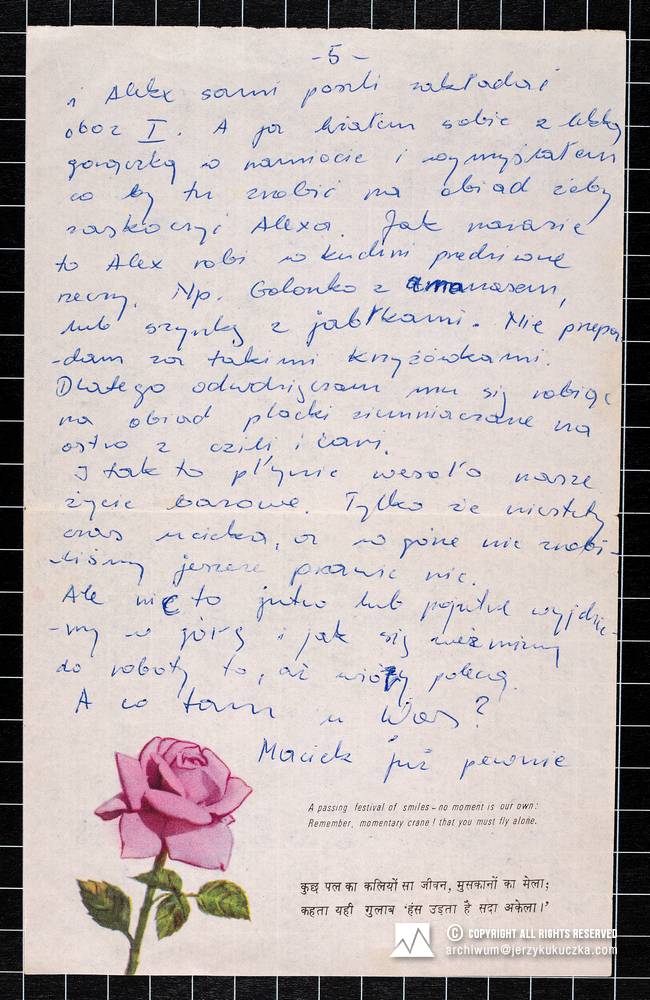 -5-
i Alex sami poszli zakładać
obóz I. A ja leżałem sobie z lekką
gorączką w namiocie i wymyślałem
co by tu zrobić na obiad żeby
zaskoczyć Alexa. Jak narazie
to Alex robi w kuchni przedziwne
rzeczy. Np. Golonko z ananasem,
lub szynkę z jabłkami. Nie przepa-
-dam za takimi krzyżówkami.
Dlatego odwdzięczam mu się robiąc
na obiad placki ziemniaczane na
ostro z czili i
I tak to płynie wesoło nasze
życie bazowe. Tylko że niestety
czas ucieka, a w górze nie zrobi-
-liśmy jeszcze prawie nic.
Ale nic to jutro lub pojutrze wyjdzie-
-my w górę i jak się weźmiemy
do roboty to, aż wióry polecą.
A co tam u Was?
Maciek już pewnie
A passing festival of smiles – no moment is our own:
Remember, momentary crane ! that you must fly alone.
कुछ पल का कलियों सा जीवन, मुसकानों का मेला;
कहता यही गुलाब 'हंस उड़ता है सदा अकेला।'
© COPYRIGHT ALL RIGHTS RESERVED
archiwum@jerzykukuczka.com